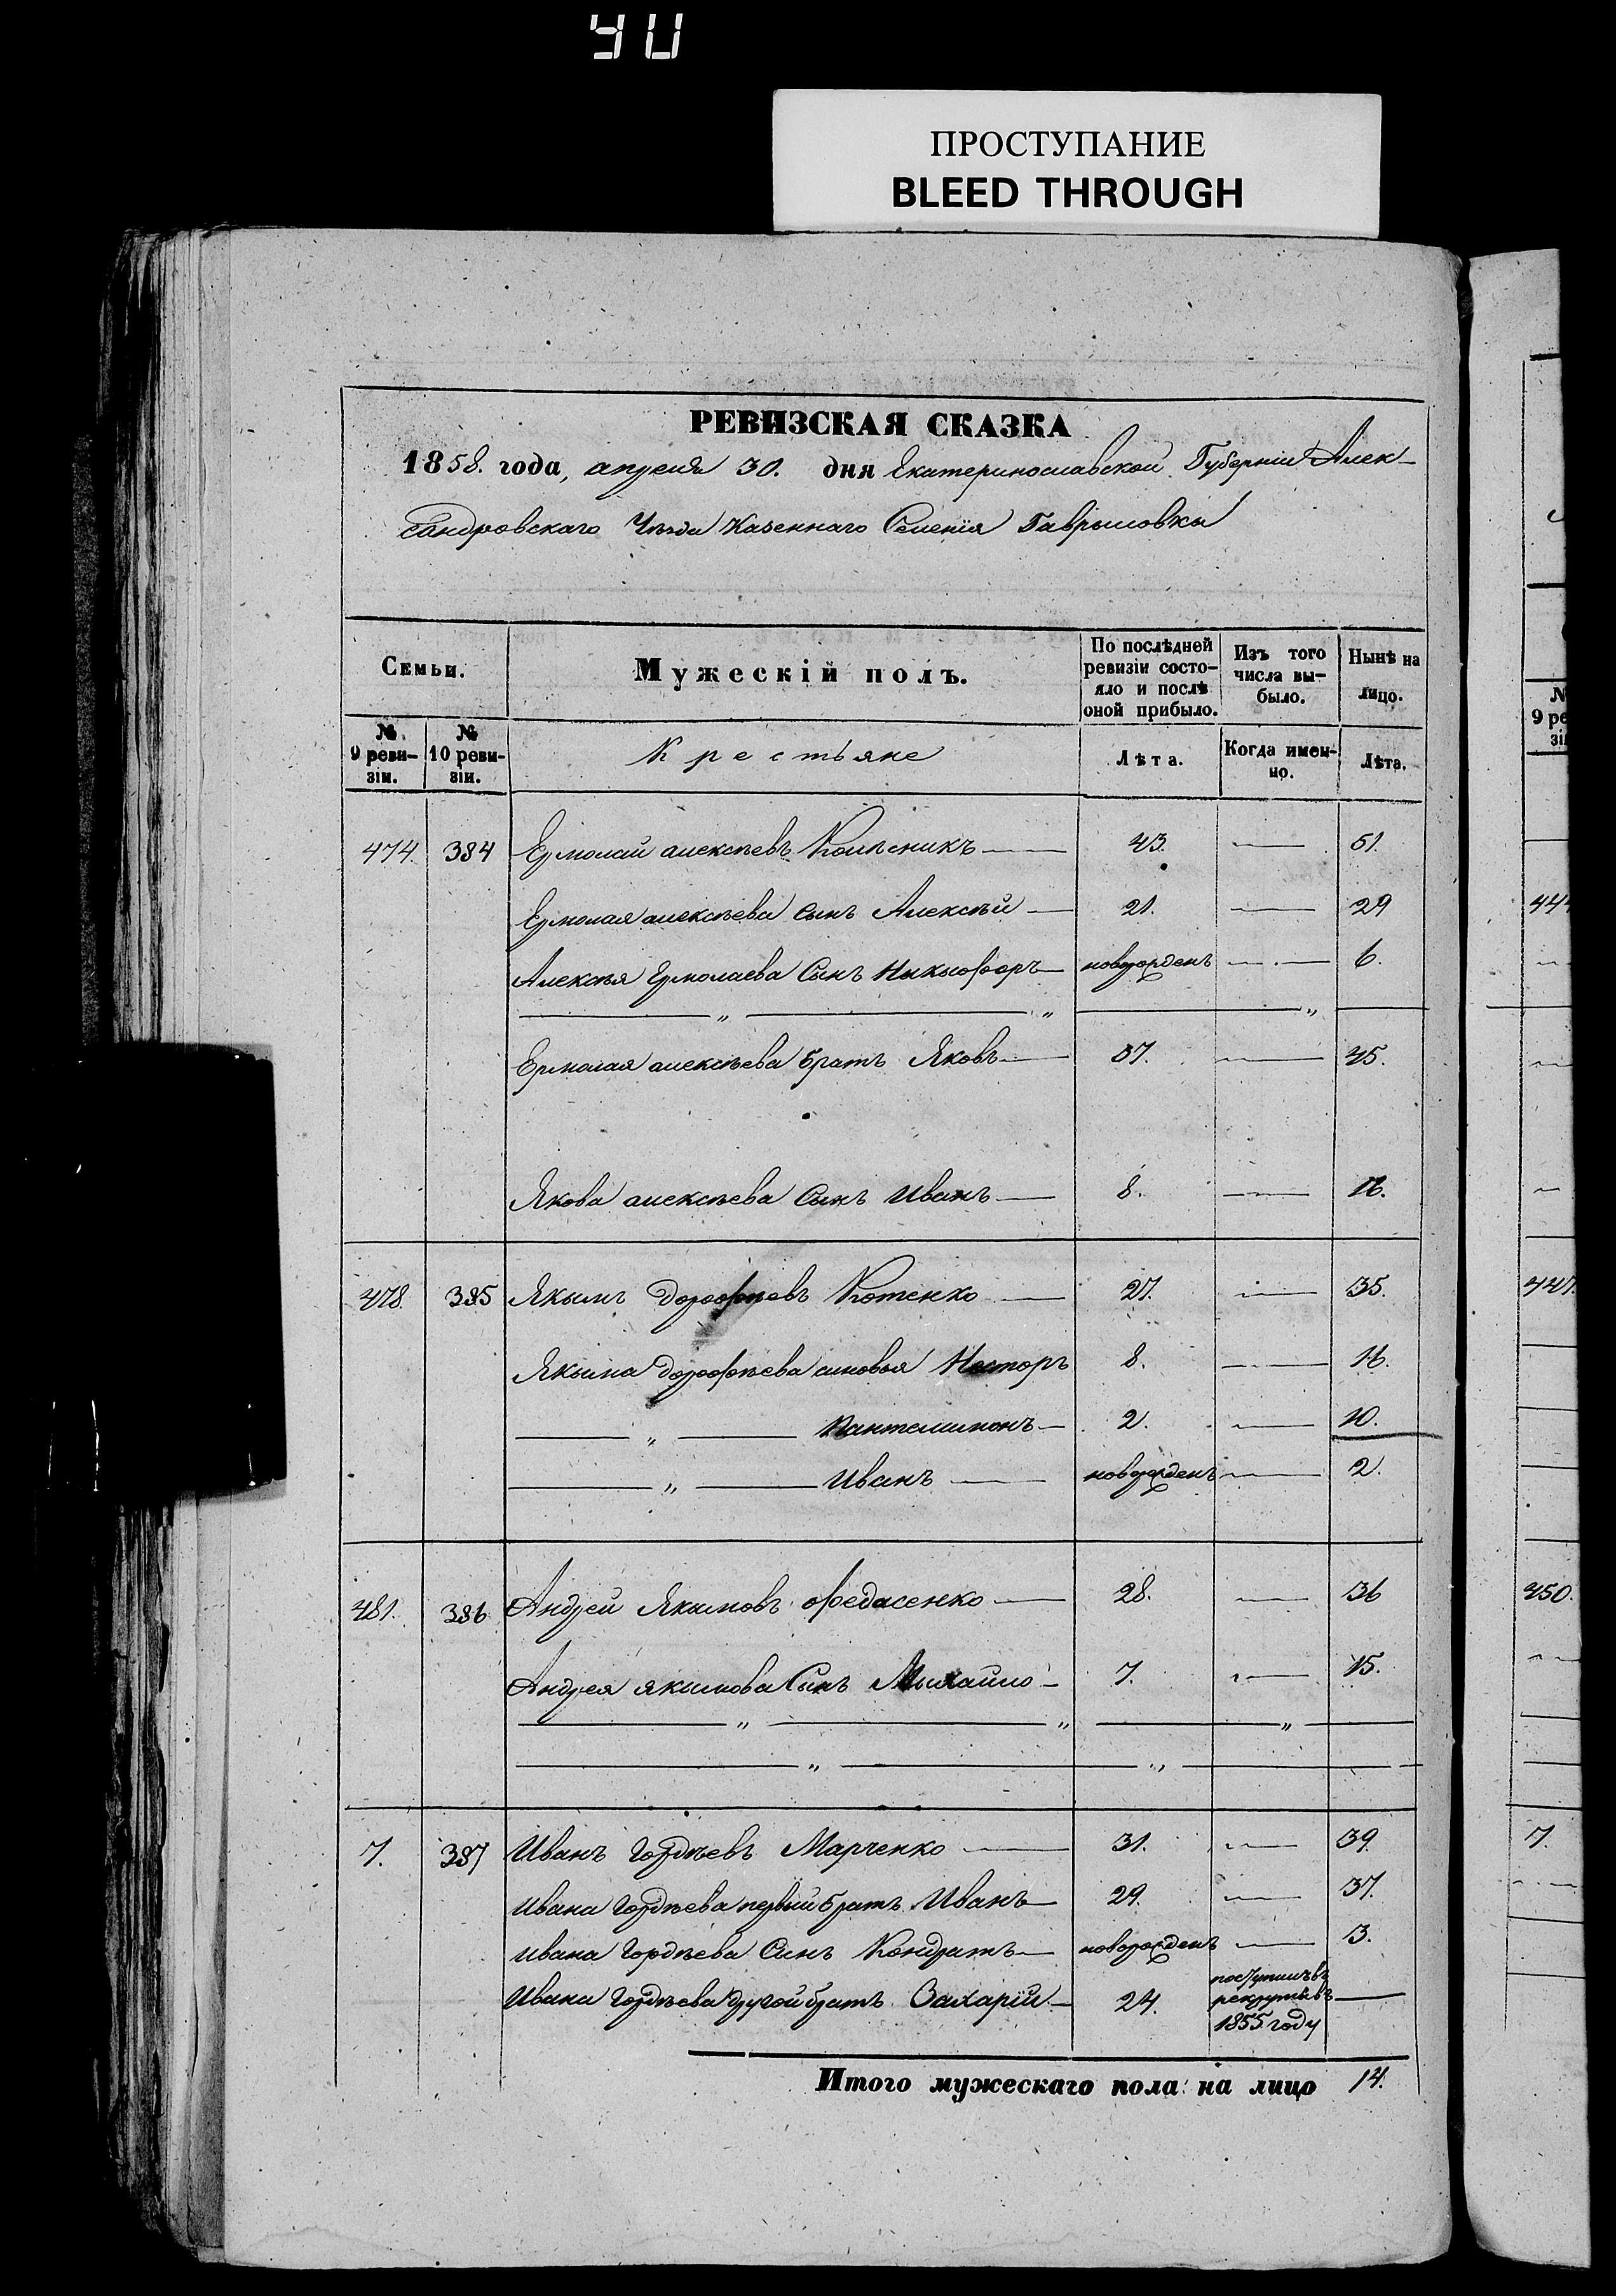 40
ПРОСТУПАНИЕ
BLEED THROUGH
РЕВИЗСКАЯ СКАЗКА
1858. года, апреля 30. дня Екатеринославской Губерніи Алек-
сандровскаго Уѣзда Казеннаго Селенія Гаврыловки
Семьи. Мужескій полъ. По послѣдней ревизіи состо-яло и послѣ оной прибыло. Изъ того числа вы-было. Нынѣ на лицо.
№ 9 реви-зіи. № 10 реви-зіи. Крестьяне Лѣта. Когда имен-но. Лѣта.
474. 384 Ермолай алексѣевъ Колѣсникъ 43. 51.
Ермолая алексѣева сынъ Алексѣй 21. 29
Алексѣя Ермолаева Сынъ Никыфоръ новорожденъ 6.
Ермолая алексѣева братъ Яковъ 37. 45.
Якова алексѣева Сынъ Иванъ 8. 16.
478. 385 Якымъ дорофѣевъ Котенко 27. 35.
Якыма дорофѣева сыновья Несторъ 8. 16.
" Пантелимонъ 2. 10.
" Иванъ новорожденъ 2.
481. 386 Андрей Якымовъ Федасенко 28. 36
Андрея якымова Сынъ Мыхайло 7. 15.
7. 387 Иванъ гордѣевъ Марченко 31. 39.
Ивана гордѣева первый братъ Иванъ 29. 37.
Ивана гордѣева Сынъ Кондратъ новорожденъ 3.
Ивана гордѣева другой братъ Захарій 24. поступилъ въ рекруты въ 1855 году
Итого мужескаго пола на лицо 14.
№ 9 ре зі
444
447.
450.
7.